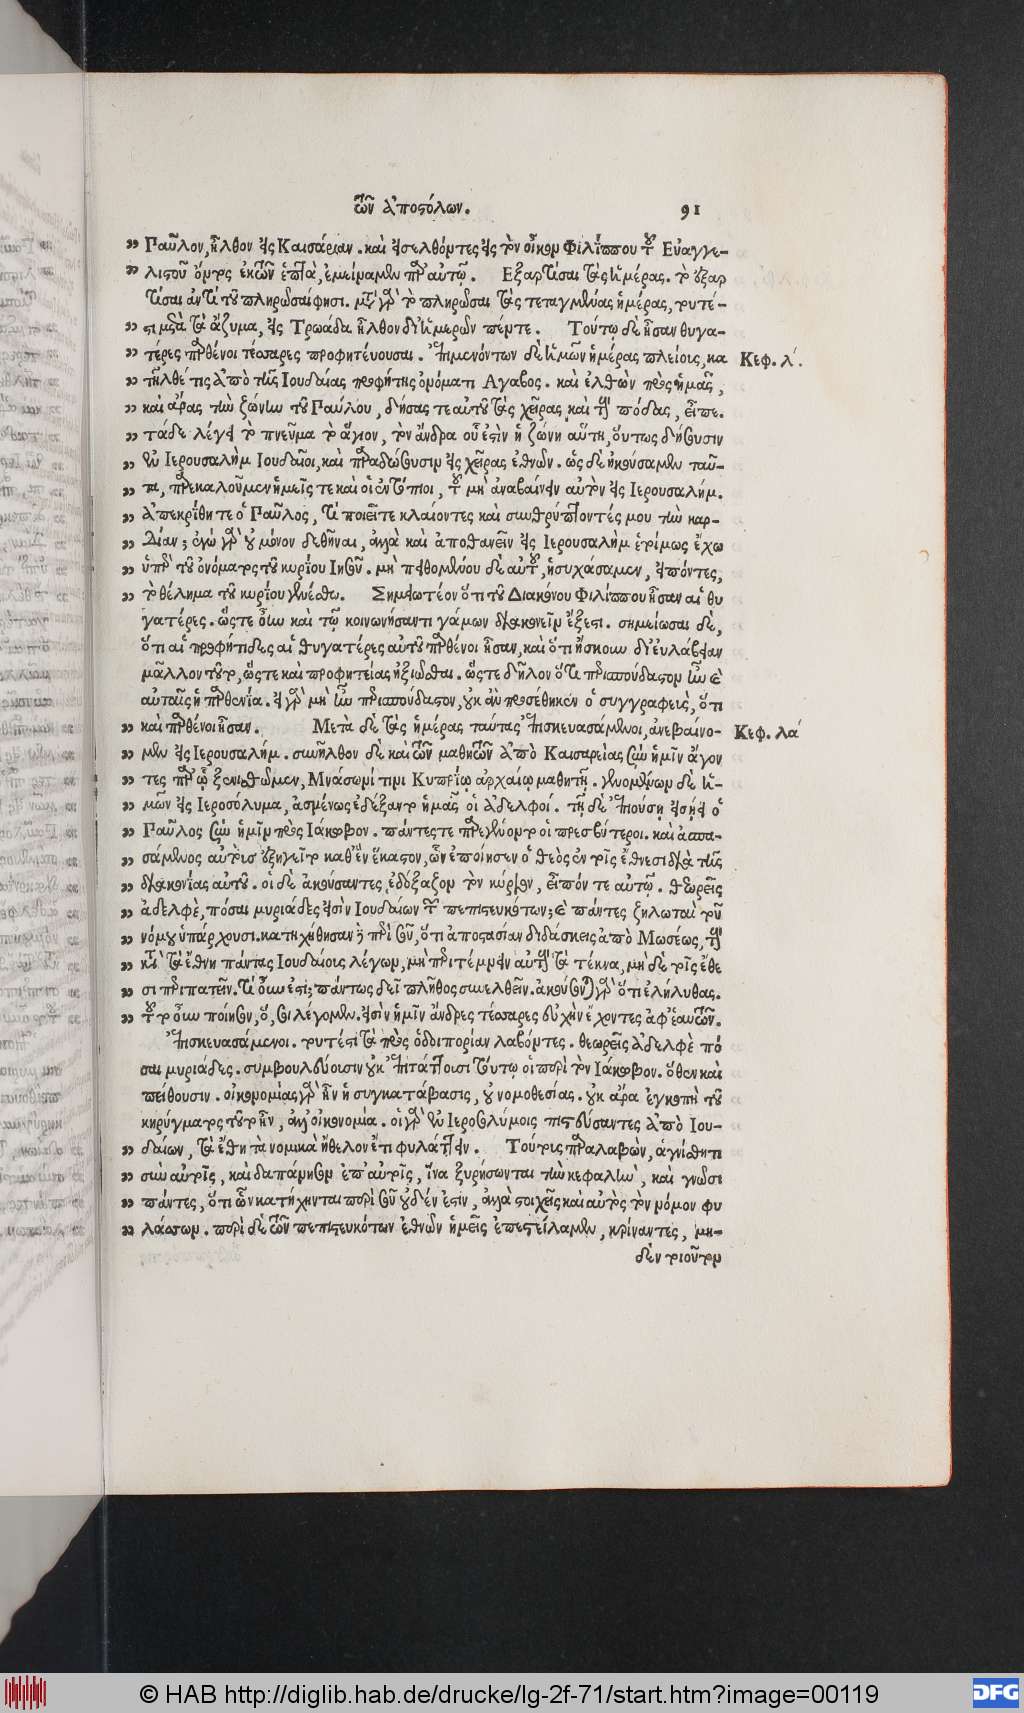 τῶν ἀποστόλων. 91
" Παῦλον, ἦλθον εἰς Καισάρειαν. καὶ εἰσελθόντες εἰς τὸν οἶκον Φιλίππου τοῦ Εὐαγγε-
" λιστοῦ ὄντος ἐκ τῶν ἑπτὰ, ἐμείναμεν παρ' αὐτῷ. Ἐξαρτίσαι τὰς ἡμέρας. τὸ ἐξαρ
τίσαι ἀντὶ τοῦ πληρῶσαί φησι. μετὰ γὰρ τὸ πληρῶσαι τὰς τεταγμένας ἡμέρας, τουτέ-
" στι μετὰ τὰ ἄζυμα, εἰς Τρωάδα ἦλθον δι' ἡμερῶν πέντε. Τούτῳ δὲ ἦσαν θυγα-
" τέρες παρθένοι τέσσαρες προφητεύουσαι. Ἐπιμενόντων δὲ ἡμῶν ἡμέρας πλείους, κα Κεφ. λ'.
" τῆλθέ τις ἀπὸ τῆς Ἰουδαίας προφήτης ὀνόματι Ἄγαβος. καὶ ἐλθὼν πρὸς ἡμᾶς,
" καὶ ἄρας τὴν ζώνην τοῦ Παύλου, δήσας τε αὐτοῦ τὰς χεῖρας καὶ τοὺς πόδας, εἶπε.
" τάδε λέγει τὸ πνεῦμα τὸ ἅγιον, τὸν ἄνδρα οὗ ἐστὶν ἡ ζώνη αὕτη, οὕτως δήσουσιν
" ἐν Ἰερουσαλὴμ Ἰουδαῖοι, καὶ παραδώσουσιν εἰς χεῖρας ἐθνῶν. ὡς δὲ ἠκούσαμεν ταῦ-
" τα, παρεκαλοῦμεν ἡμεῖς τε καὶ οἱ ἐντόπιοι, τοῦ μὴ ἀναβαίνειν αὐτὸν εἰς Ἰερουσαλήμ.
" ἀπεκρίθη τε ὁ Παῦλος, τί ποιεῖτε κλαίοντες καὶ συνθρύπτοντές μου τὴν καρ-
" δίαν; ἐγὼ γὰρ οὐ μόνον δεθῆναι, ἀλλὰ καὶ ἀποθανεῖν εἰς Ἰερουσαλὴμ ἑτοίμως ἔχω
" ὑπὲρ τοῦ ὀνόματος τοῦ κυρίου Ἰησοῦ. μὴ πειθομένου δὲ αὐτοῦ, ἡσυχάσαμεν, εἰπόντες,
" τὸ θέλημα τοῦ κυρίου γενέσθω. Σημειωτέον ὅτι τοῦ Διακόνου Φιλίππου ἦσαν αἱ θυ
γατέρες. ὥστε οὖν καὶ τῷ κοινωνήσαντι γάμων διακονεῖν ἔξεστι. σημείωσαι δὲ,
ὅτι αἱ προφήτιδες αἱ θυγατέρες αὐτοῦ παρθένοι ἦσαν, καὶ ὅτι ἤσκουν δι' εὐλάβειαν
μᾶλλον τοῦτο, ὥστε καὶ προφητείας ἠξιῶσθαι. ὥστε δῆλον ὅτι περισπούδαστον ἦν
αὐταῖς ἡ παρθενία. εἰ γὰρ μὴ ἦν περισπούδαστον, οὐκ ἂν προσέθηκεν ὁ συγγραφεὺς, ὅτι
" καὶ παρθένοι ἦσαν. Μετὰ δὲ τὰς ἡμέρας ταύτας ἐπισκευασάμενοι, ἀνεβαίνο- Κεφ. λα'
" μεν εἰς Ἰερουσαλήμ. συνῆλθον δὲ καὶ τῶν μαθητῶν ἀπὸ Καισαρείας σὺν ἡμῖν ἄγον
" τες παρ' ᾧ ξενισθῶμεν, Μνάσωνί τινι Κυπρίῳ ἀρχαίῳ μαθητῇ. γενομένων δὲ ἡ-
" μῶν εἰς Ἱεροσόλυμα, ἀσμένως ἐδέξαντο ἡμᾶς οἱ ἀδελφοί. τῇ δὲ ἐπιούσῃ εἰσῄει ὁ
" Παῦλος σὺν ἡμῖν πρὸς Ἰάκωβον. πάντες τε παρεγένοντο οἱ πρεσβύτεροι. καὶ ἀσπα-
" σάμενος αὐτοὺς ἐξηγεῖτο καθ' ἓν ἕκαστον, ὧν ἐποίησεν ὁ θεὸς ἐν τοῖς ἔθνεσι διὰ τῆς
" διακονίας αὐτοῦ. οἱ δὲ ἀκούσαντες, ἐδόξαζον τὸν κύριον, εἶπόν τε αὐτῷ. θεωρεῖς
" ἀδελφὲ, πόσαι μυριάδες εἰσὶν Ἰουδαίων τῶν πεπιστευκότων; καὶ πάντες ζηλωταὶ τοῦ
" νόμου ὑπάρχουσι. κατηχήθησαν δὲ περὶ σοῦ, ὅτι ἀποστασίαν διδάσκεις ἀπὸ Μωσέως, τοὺς
" κατὰ τὰ ἔθνη πάντας Ἰουδαίους λέγων, μὴ περιτέμνειν αὐτοὺς τὰ τέκνα, μηδὲ τοῖς ἔθε
" σι περιπατεῖν. τί οὖν ἐστί; πάντως δεῖ πλῆθος συνελθεῖν. ἀκούσονται γὰρ ὅτι ἐλήλυθας.
" τοῦτο οὖν ποίησον, ὅ, σοι λέγομεν. εἰσὶν ἡμῖν ἄνδρες τέσσαρες εὐχὴν ἔχοντες ἀφ' ἑαυτῶν.
Ἐπισκευασάμενοι. τουτέστι τὰ πρὸς ὁδοιπορίαν λαβόντες. θεωρεῖς ἀδελφὲ πό
σαι μυριάδες. συμβουλεύουσιν οὐκ ἐπιτάττουσι τούτῳ οἱ περὶ τὸν Ἰάκωβον. ὅθεν καὶ
πείθουσιν. οἰκονομίας γὰρ ἦν ἡ συγκατάβασις, οὐ νομοθεσίας. οὐκ ἄρα ἐγκοπὴ τοῦ
κηρύγματος τοῦτο ἦν, ἀλλ' οἰκονομία. οἱ γὰρ ἐν Ἱεροσολύμοις πιστεύσαντες ἀπὸ Ἰου-
" δαίων, τὰ ἔθη τὰ νομικὰ ἤθελον ἔτι φυλάττειν. Τούτους παραλαβὼν, ἁγνίσθητι
" σὺν αὐτοῖς, καὶ δαπάνησον ἐπ' αὐτοῖς, ἵνα ξυρήσωνται τὴν κεφαλὴν, καὶ γνῶσι
" πάντες, ὅτι ὧν κατήχηνται περὶ σοῦ οὐδέν ἐστιν, ἀλλὰ στοιχεῖς καὶ αὐτὸς τὸν νόμον φυ
" λάσσων. περὶ δὲ τῶν πεπιστευκότων ἐθνῶν ἡμεῖς ἐπεστείλαμεν, κρίναντες, μη-
δὲν τοιοῦτον
© HAB http://diglib.hab.de/drucke/lg-2f-71/start.htm?image=00119
DFG